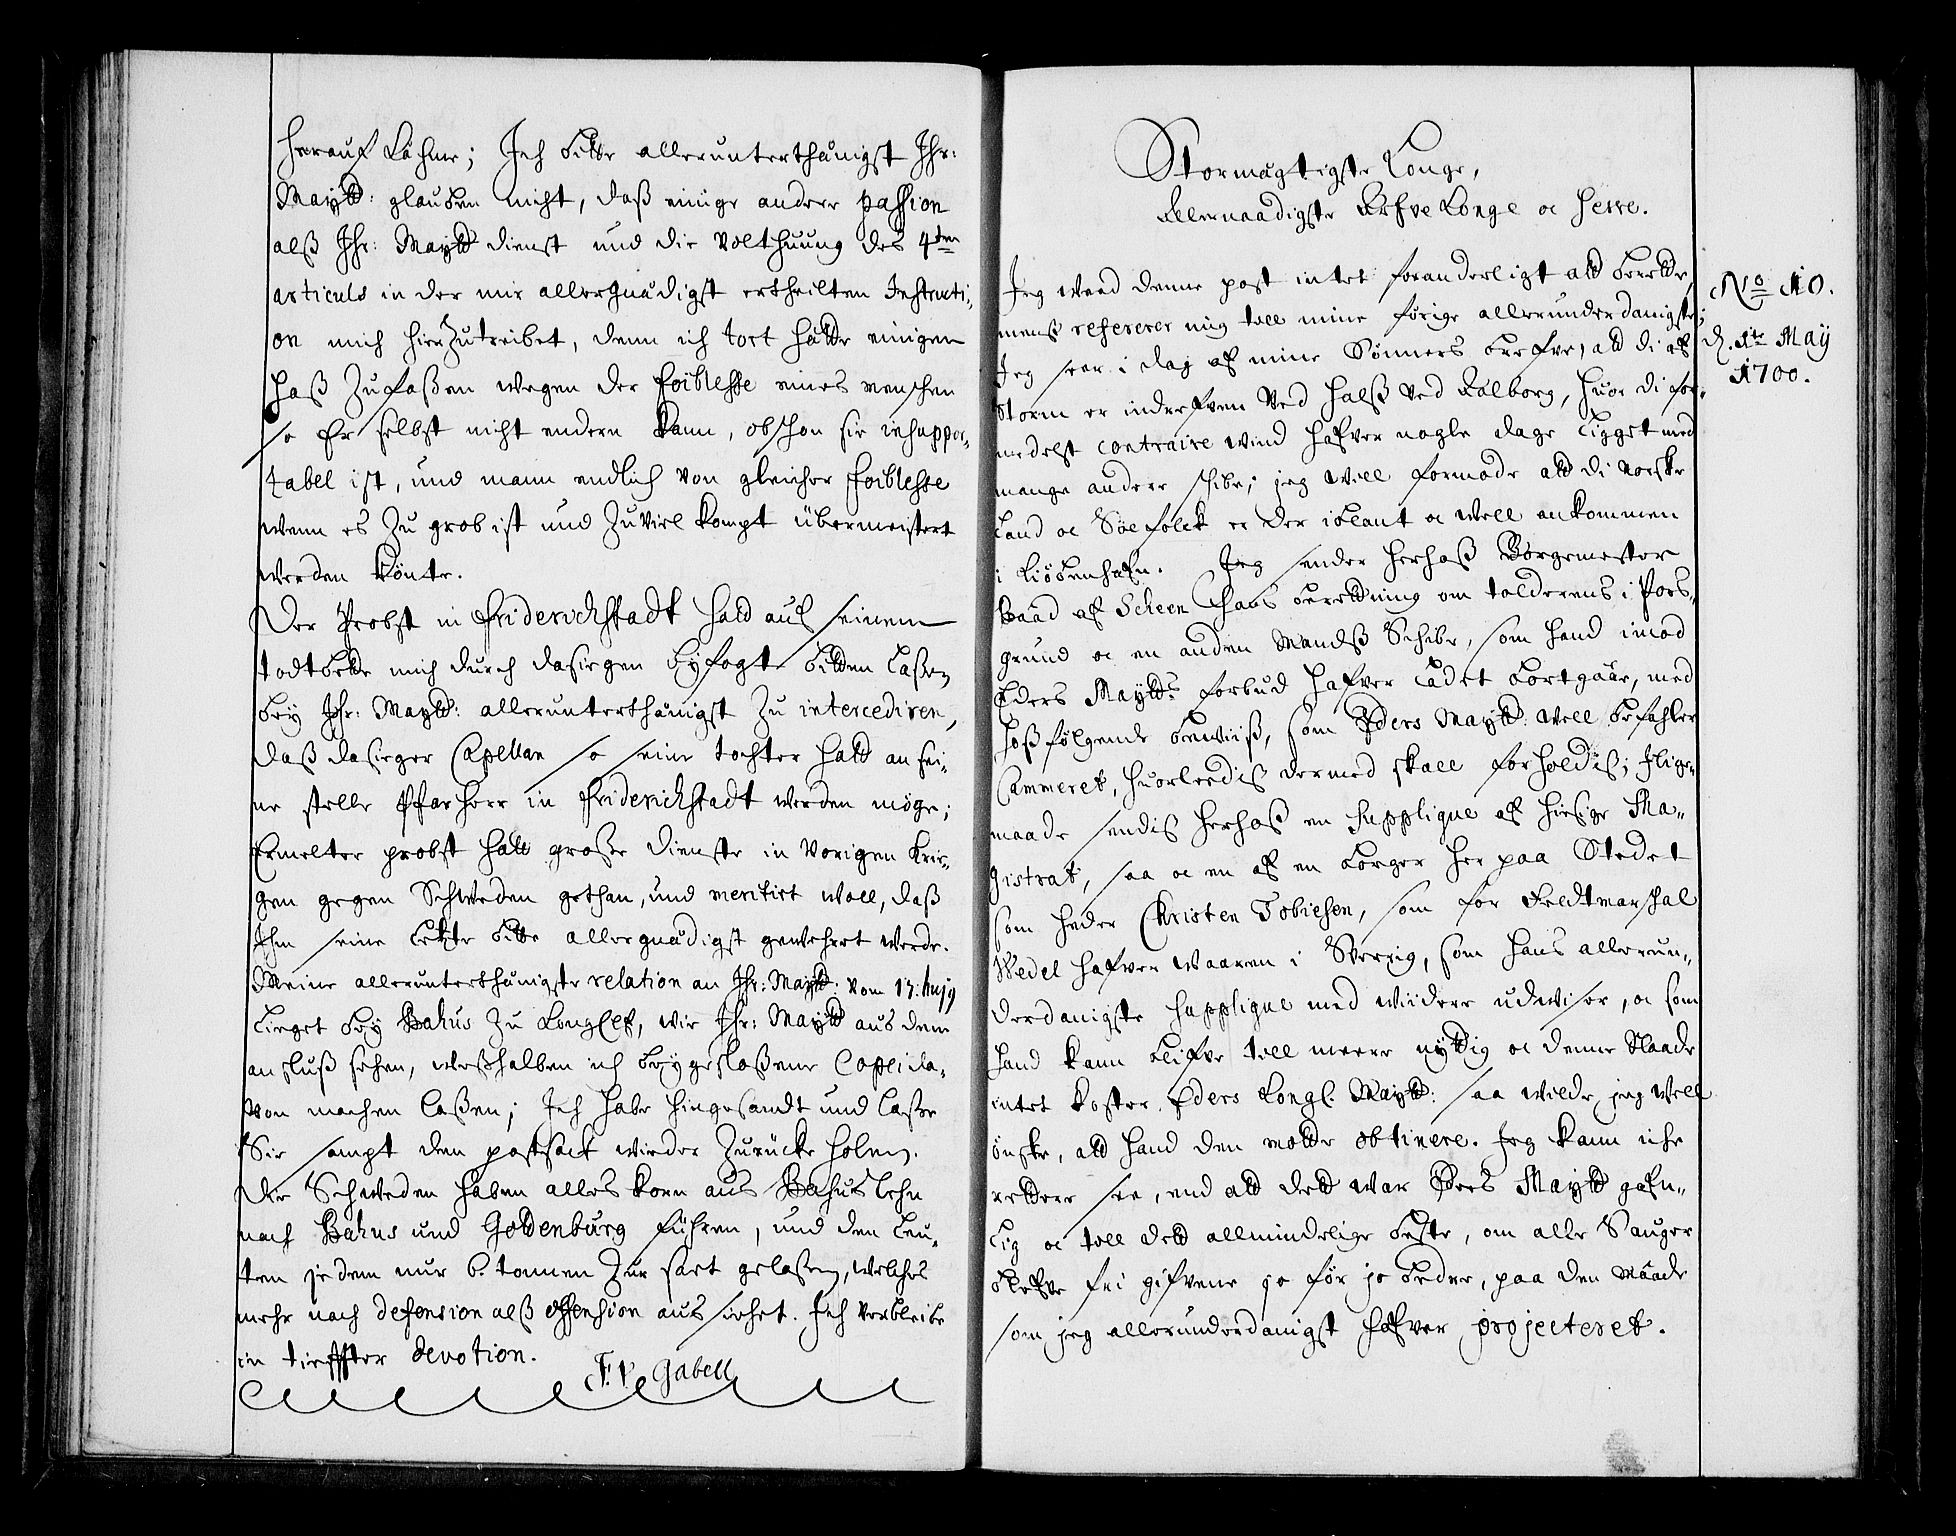 herauf kähme; Ich bitte allerunterthänigst Ihr:
Maytt: glauben nicht, daß einige andere passion
alß Ihr: Maytt dienst und die Volthuung des 4ten
articuls in der mir allergnädigst ertheilten Instructi,
on mich hierzu treibet, denn ich tort hätte einigen
haß zu faßen wegen der foiblesse eines menschen
so Er selbst nicht endern kann, obschon sie insuppor,
tabel ist, und mann endlich von gleicher foiblesse
wenn es zu grob ist und zu viel kompt übermeistert
werden könte.
Der Probst in Friderichstadt hatt auf seinem
todtbette mich durch dasiegen byfogt bitten laßen
bey Ihr: Maytt: allerunterthänigst zu intercediren,
daß dasieger Capellan so seine tochter hatt an sei,
ne stelle Pfarherr in Friderichstadt werden möge;
Ermelter probst hatt große dienste in vorigen krie,
gen gegen Schweden gethan, und meritirt woll, daß
Ihm seine letzte bitte allergnädigst gewehret werde.
Meine allerunterthänigste relation an Ihr: Maytt: vom 17.
lieget bey Bahus zu Kongelf, wie Ihr: Maytt aus dem
anschluß sehen, weßhalben ich beygeschloßene Copeida,
von machen laßen; Ich habe hingesandt und laße
Sie sampt dem postsack wieder zurücke holen.
Die Schweden haben alles korn aus Bahuslehn
nach Bahus und Gottenburg führen, und den leu,
ten jedem nur 6. tonnen zur saet gelaßen, welches
mehr nach defension alß offension aussiehet. Ich verbleibe
in tieffster devotion.
F. V. Gabell
Stormägtigste Konge,
Allernaadigste Arfve Konge oc Herre.
No 10.
d. 1te May
1700.
Jeg weed denne post intet foranderligt att berette,
mens refererer mig till mine forige allerunderdanigste;
Jeg seer i dag af mine Sönners brefve, att di af
Storm er indrefven ved Halß ved Aalborg, huor di for,
medelst contraire wind hafver nogle dage ligget med
mange andere schibe; jeg will formode att di norske
Land oc Söefolck er der iblant oc well ankommen
i Kiöbenhafn. Jeg sender herhoß Borgemester
Baad af Scheen hans beretning om tolderens i Pors,
grund oc en anden Mandß Schibe, som hand imod
Eders Maytts forbud hafver ladet bortgaae, med
hoßfölgende bewiiß, som Eders Maytt: well befahler
Cammeret, huorledis dermed skall forholdis; Ilige,
maade sendis herhoß en supplique af hiesige Ma,
gistrat, saa oc en af en borger her paa Stedet
som heder Christen Tobiesen, som for Feldtmarschal
Wedel hafver waaren i Sverrig, som hans allerun,
derdanigste supplique med wiidere udwiser, oc som
hand kann blifve till meere nyttig oc denne Naade
intet koster Eders Kongl. Maytt: saa wilde jeg well
önske, att hand den motte obtinere. Jeg kann icke
rettere see, end att dett war Eders Maytt gafn,
lig oc till dett allmindelige beste, om alle Sauger
blefve fri gifvene jo för jo bedre, paa den Maade
som jeg allerunderdanigst hafver projecteret.